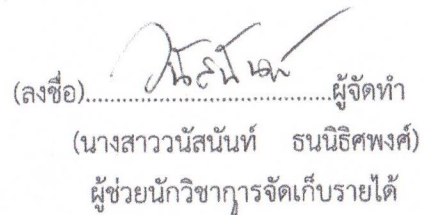 (ลงชื่อ)..............................ผู้จัดทำ
(นางสาววนัสนันท์ ธนนิธิศพงศ์)
ผู้ช่วยนักวิชาการจัดเก็บรายได้